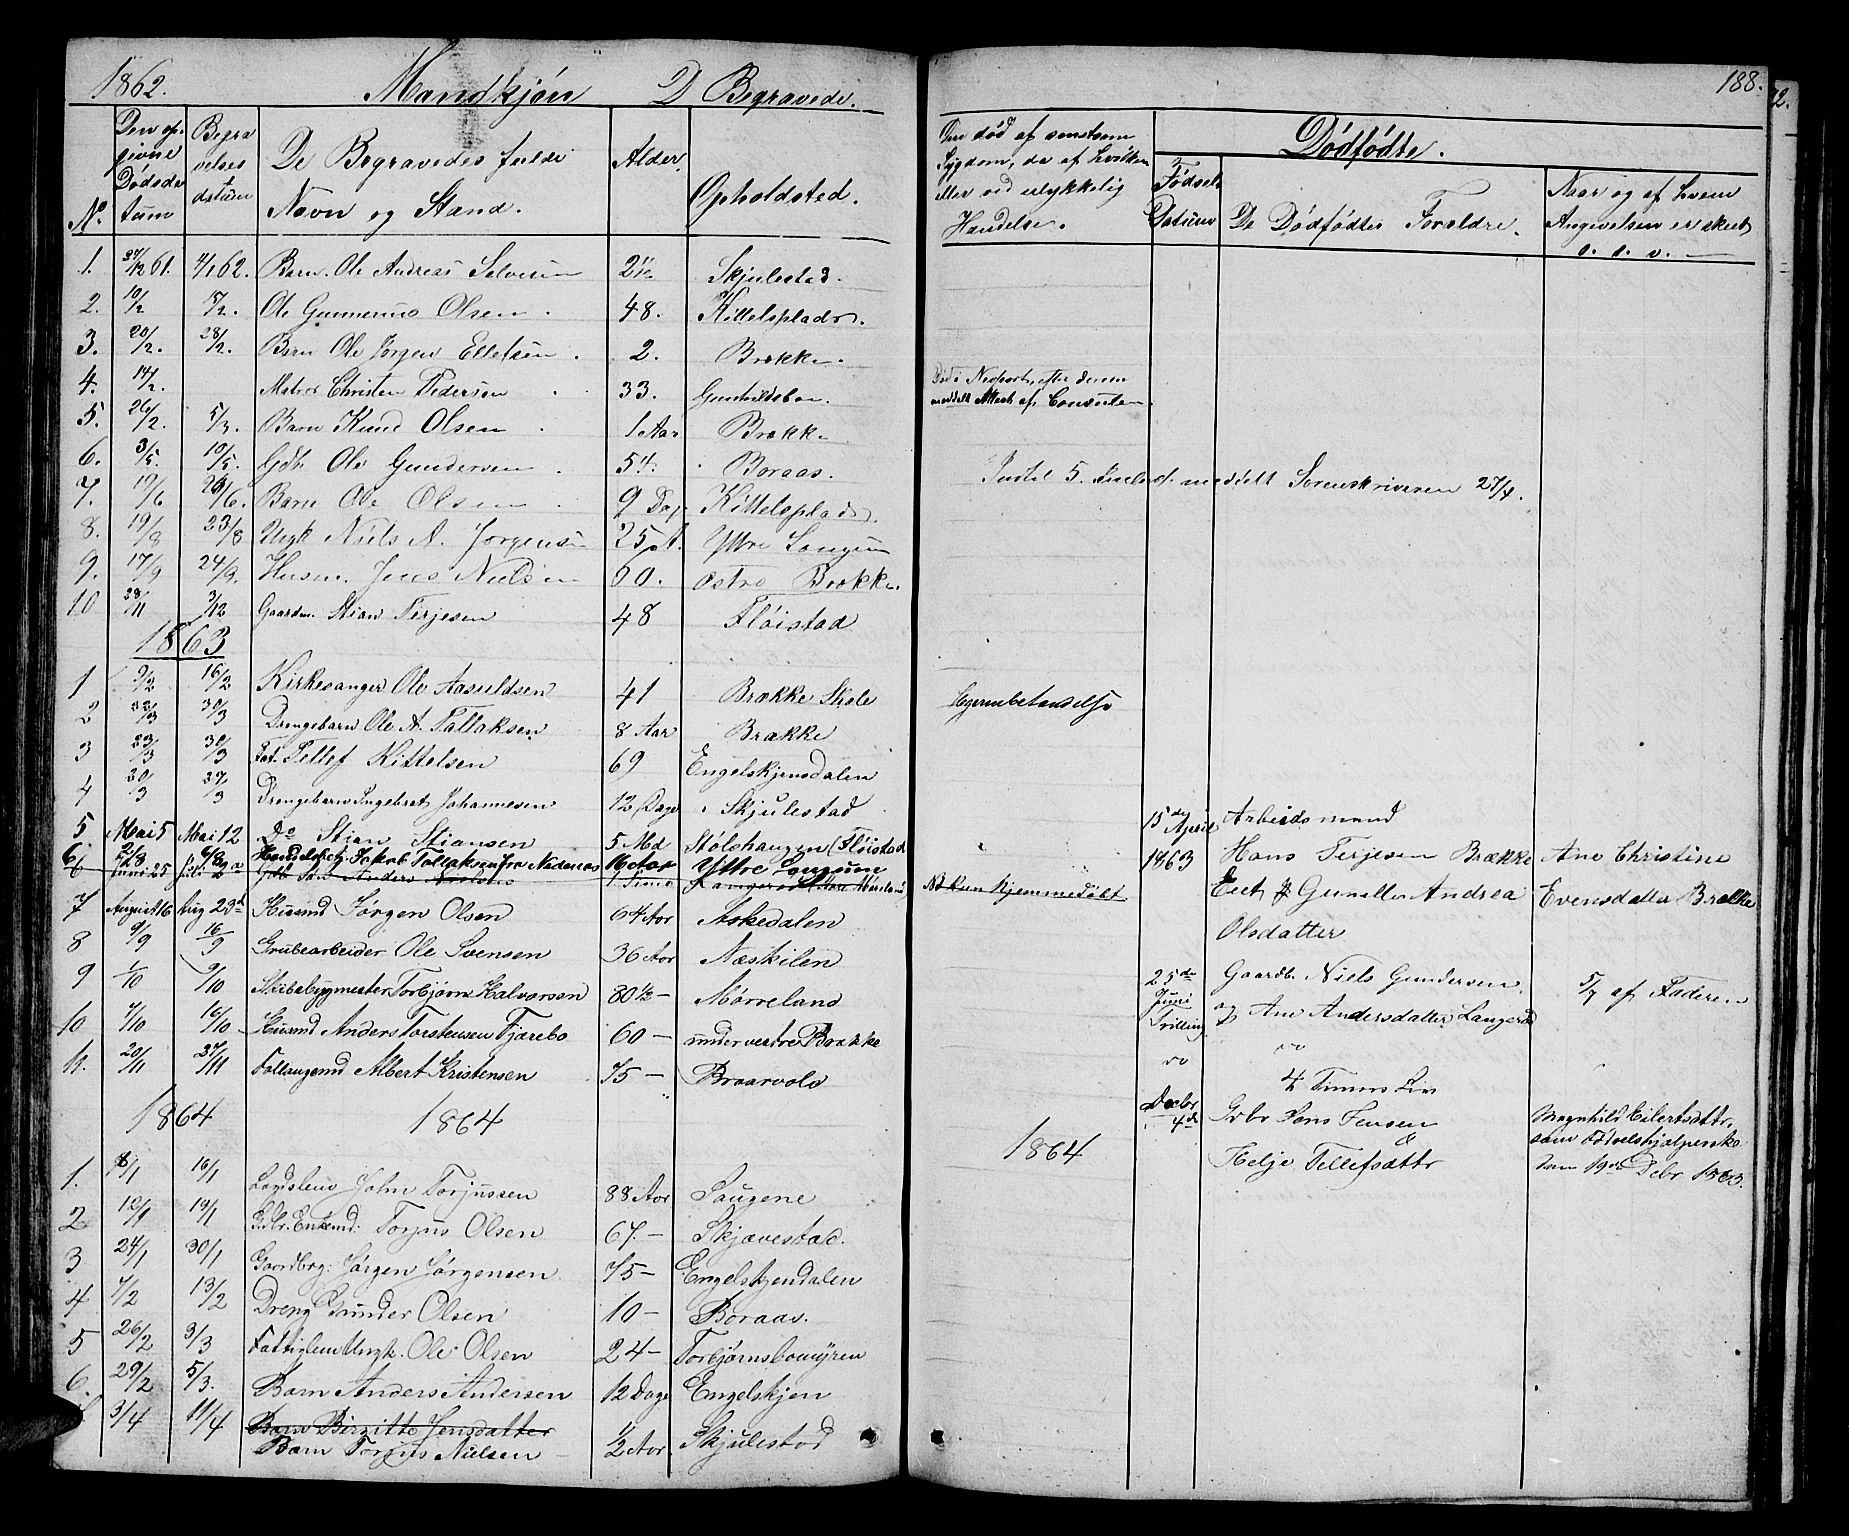 1862. Mandkjön D Begravede.
No. Den op-givne Dødsda-tum Begra-velses datum De Begravedes fulde Navn og Stand. Alder. Opholdsted.
1. 27/12 61. 4/1 62. Barn. Ole Andreas Salvesen 2 1/12 Skjulestad.
2. 10/2 Ole Gunnerius Olsen. 48. Kittelsplads.
3. 20/2. 28/2. Barn Ole Jørgen Ellefsen. 2. Brække.
4. 14/2. Matros Christen Pedersen 33. Gunhildsboe.
5. 26/2. 5/3. Barn Knud Olsen 1 Aar Brække
6. 3/5. 10/5. Gdb. Ole Gundersen. 54. Boraas.
7. 19/6 29/6. Barn Ole Olsen 9 Dag Kittelsplads.
8. 19/8 23/8 Ungk Niels A. Jørgensen 25 A. Yttre Langum
9. 17/9 24/9. Husm. Jens Nielsen 60. Østre Brække.
10 28/11 3/12 Gaardm. Stian Terjesen 48 Fløistad
1863
1 9/2 16/2 Kirkesanger Ole Aasuldsen 41 Brække Skole
2 22/3 30/3 Drengebarn Ole A. Tallaksen 8 Aar Brække
3 23/3 30/3 Fat. Tellef Kittelsen 69 Engelskjensdalen
4 20/3 27/3 Drengebarn Ingebret Johannesen 12 Dage Skjulestad
5. Mai 5 Mai 12 Do Stian Stiansen 5 Md Stølshaugen (Fløistad
6. 2/8 6/8 Handelsbetj. Jakob Tallaksen fra Nedenæs 16 Aar Yttre Langum
6 Juni 25 Gdb Søn Anders Nielsens 1 Time Langerød
7 August 16 Aug 23de Huusmd Jørgen Olsen 64 Aar Askedalen
8 9/9 16/9 Grubearbeider Ole Svensen 36 Aar Næskilen
9 1/10 9/10 Skibsbygmester Torbjørn Halvorsen 80 1/2 — Mørreland
10 7/10 16/10 Huusmd Anders Torstensen Fjærebo 60 — under vestre Brække
11. 20/11 27/11 Follaugsmd Albert Kristensen 75 — Braarvold
1864 1864
1. 8/1 16/1 Lægdslem John Torjussen 88 Aar Saugene
2 12/1 19/1 Gdbr. Enkemd: Torjus Olsen 67. — Skjævestad.
3 24/1 30/1 Gaardbrg: Jørgen Jørgensen 75 — Engelskjendalen
4 7/2 13/2 Dreng Gunder Olsen 10 — Boraas.
5 26/2 3/3 Fattiglem Ungk. Ole Olsen 24 — Torbjørnsbomyren
6. 29/2 5/3. Barn Anders Andersen 12 Dage Engelskjen
3/4 11/4 Barn Birgitte Jensdatter
Barn Torjus Nielsen 1/2 Aar Skjulestad
188.
Om død af smitsom Sygdom, da af hvilken eller ved ulykkelig Hændelse.
Dødfødte.
Fødsels Datum De Dødfødtes Forældre. Naar og af hvem Angivelsen er skeet o. s. v.
Død i Newport, efter derom meddelt Attest af Consulen.
Indtil 5. Incl. meddelt Sorenskriveren 27/4.
Hjernebetændelse
No 6 kun hjemmedøbt
15de April 1863 Arbeidsmand
Hans Terjesen Brække Ane Christine
Eeit & Gunille Andrea Evensdatter Brække
Olsdatter
25de Juni Trilling Gaardb. Niels Gundersen 5/7 af Faderen
og Ane Andersdatter Langerød
do do
4 Timers Liv
Decbr 4de Grbr Jens Jensen Magnhild Eilertsdttr,
& som Fødselshjælperske
Helje Tellefsdttr den 19de Debr 1863.
1864